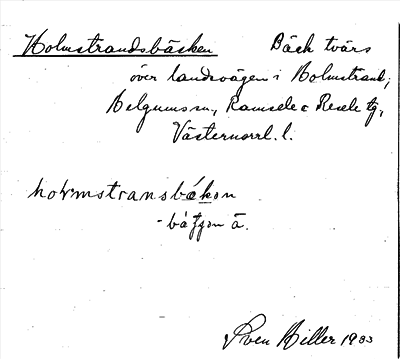 Holmstrandsbäcken Bäck tvärs
över landsvägen i Holmstrand,
Helgums sn, Ramsele o Resele tg,
Västernorrl. l.
hoḷmstransbäkən
Sven Hiller 1933